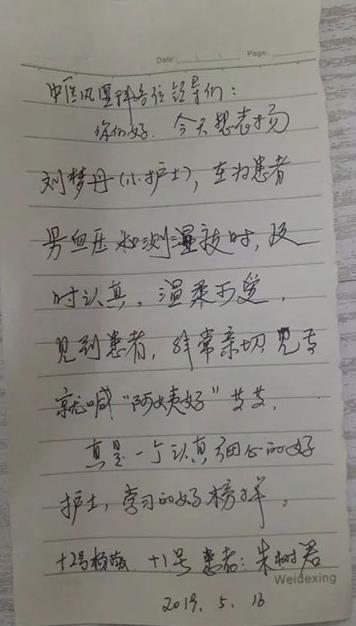 Date: Page:
中医风湿科各位领导们:
你们好. 今天想表扬
刘梦丹(小护士), 在为患者
量血压和测温技时, 及
时认真。温柔可爱,
见到患者, 非常亲切 见
就喊“阿姨好”
真是一个认真细心的好
护士, 学习的好榜样。
+2号杨 +1号 患者: 朱树君
Weidexing
2019. 5. 16